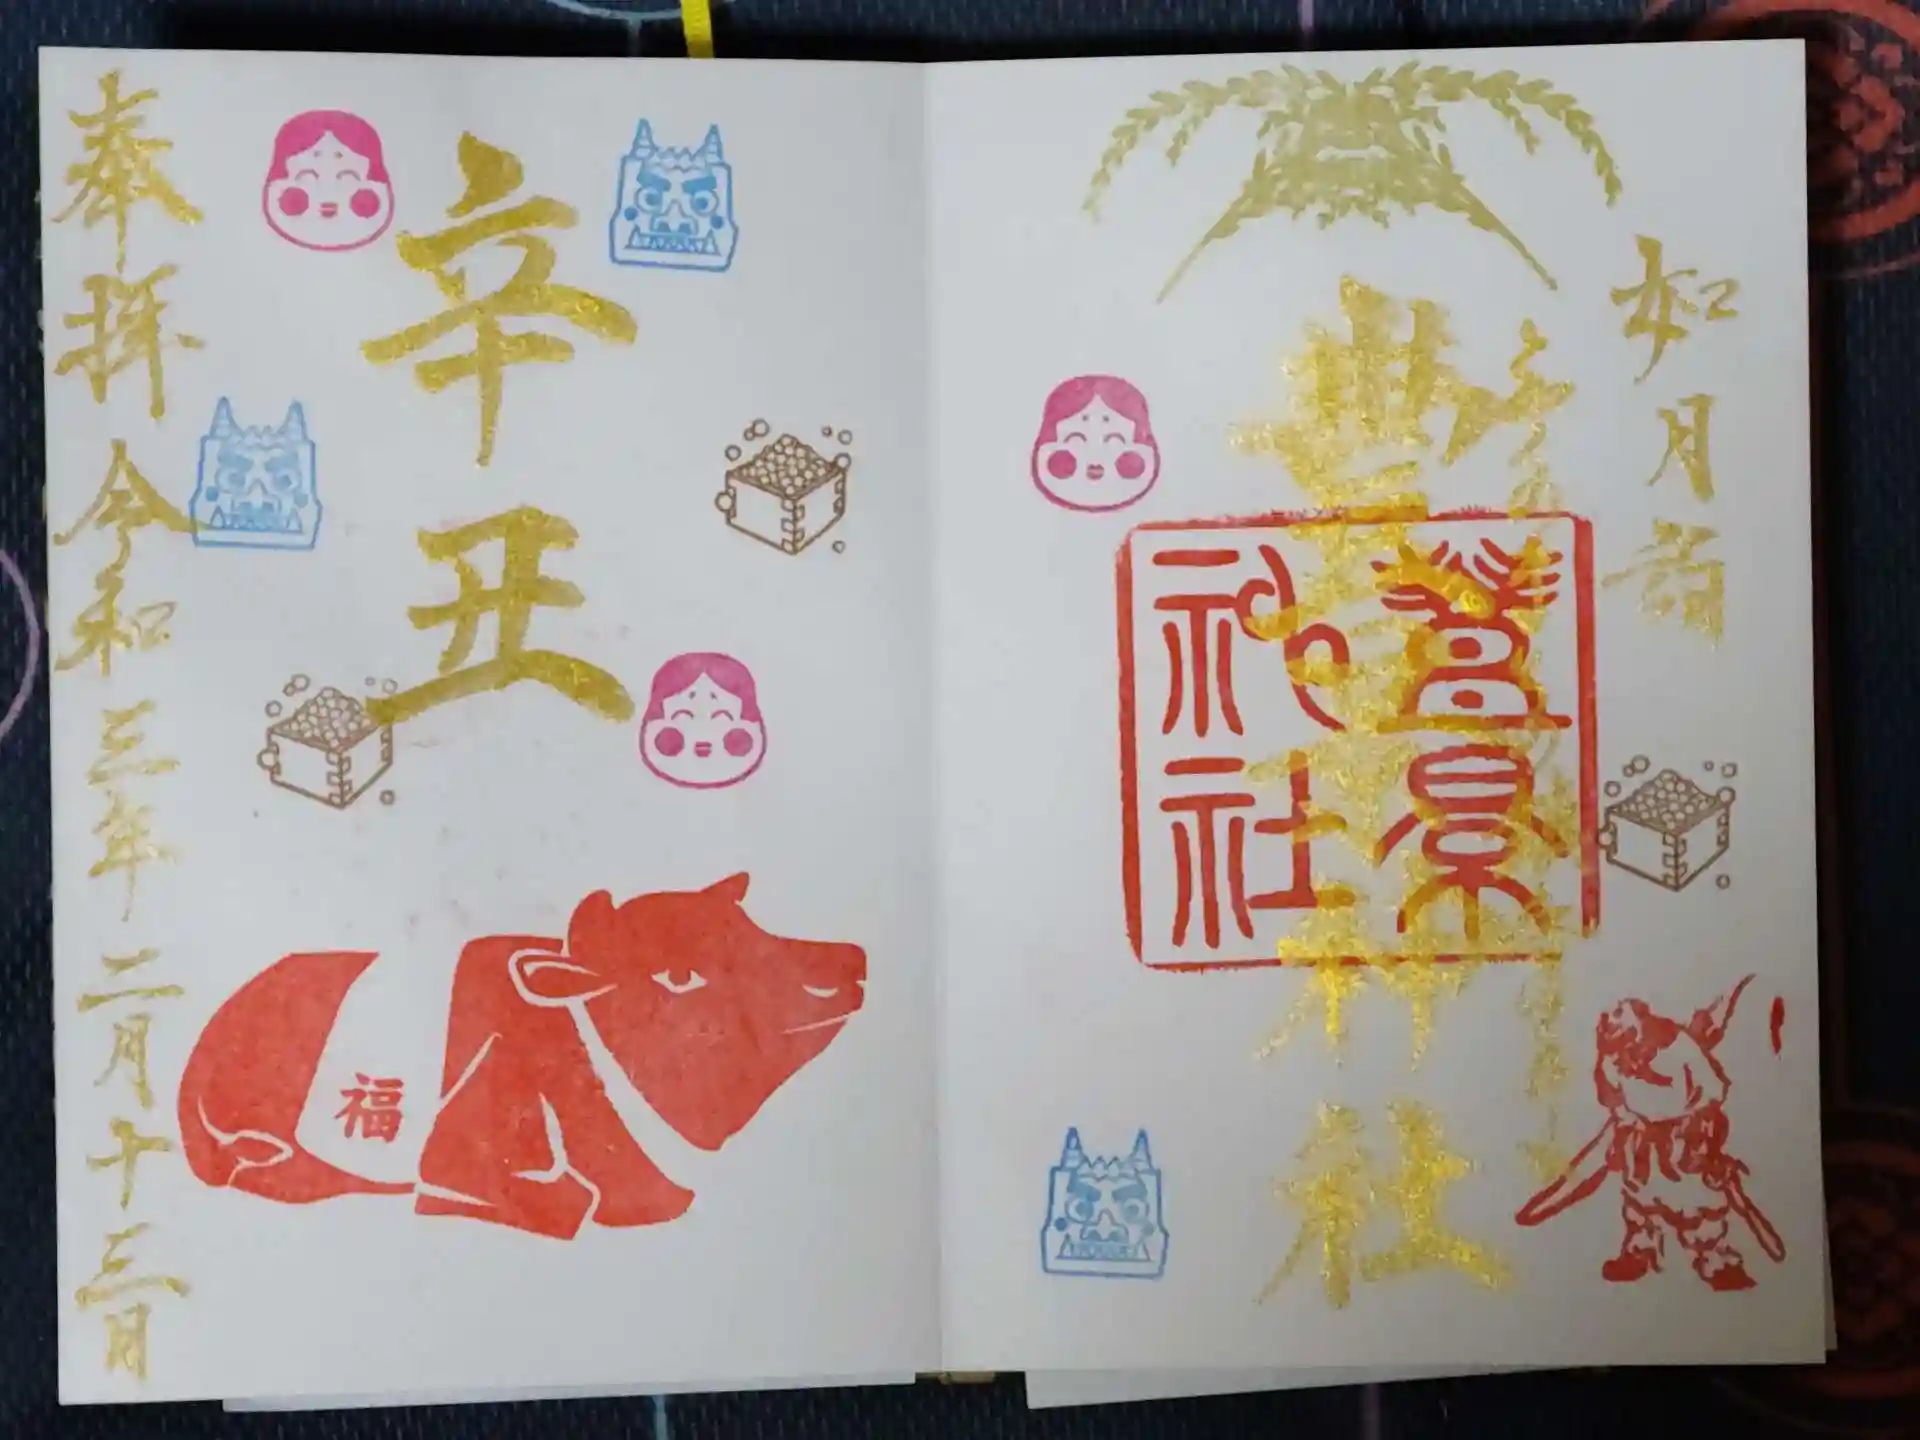 如月詣
豊景神社
豊景
神社
辛丑
福
奉拝 令和三年二月十三日